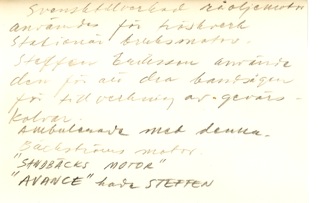 Svensktillverkad råoljemotor
användes för tröskverk
Stationär bruksmotor.
Steffen Eriksson använde
den för att dra bandsågen
för tillverkning av gevärs-
kolvar.
Ambulerade med denna.
Bäckströms motor.
"SANDBÄCKS MOTOR"
"AVANCE" hade STEFFEN